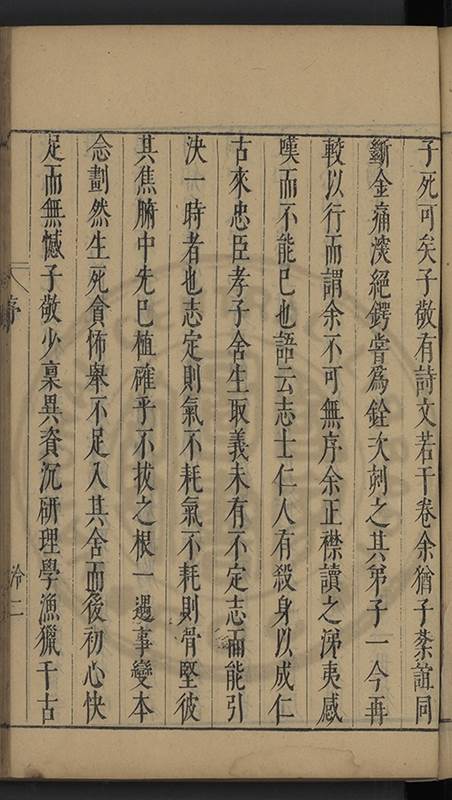 子死可矣子敬有詩文若干卷余猶子荼誼同
斷金痛深絕鍔嘗為銓次刻之其弟子一今再
較以行而謂余不可無序余正襟讀之涕夷感
嘆而不能已也語云志士仁人有殺身以成仁
古來忠臣孝子舍生取義未有不定志而能引
決一時者也志定則氣不耗氣不耗則骨堅彼
其焦腑中先已植確乎不拔之根一遇事變本
念劃然生死會怖舉不足入其舍而後初心快
足而無憾子敬少稟異資沉研理學漁獵千古
序
冷二